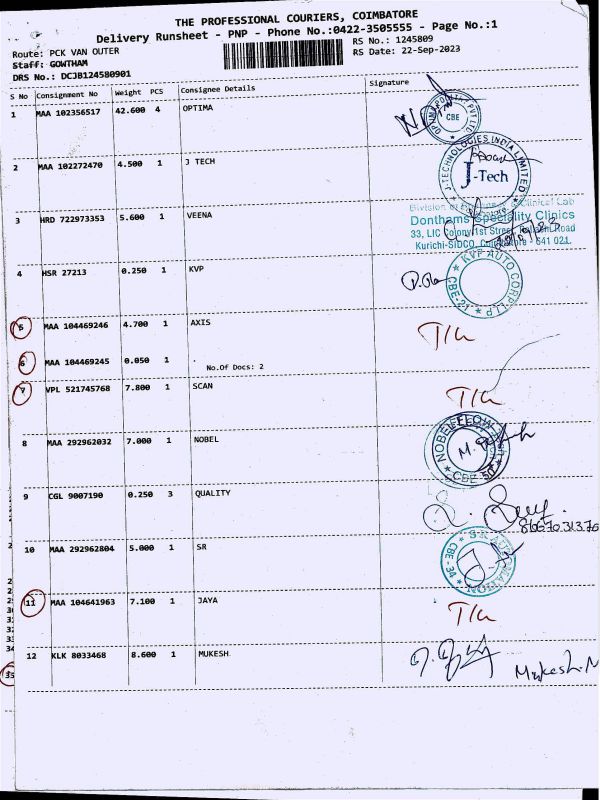 THE PROFESSIONAL COURIERS, COIMBATORE
Delivery Runsheet - PNP - Phone No.:0422-3505555 - Page No.:1
Route: PCK VAN OUTER RS No.: 1245809
Staff: GOWTHAM RS Date: 22-Sep-2023
DRS No.: DCJB124580901
S No Consignment No Weight PCS Consignee Details Signature
1 MAA 102356517 42.600 4 OPTIMA
CBE
2 MAA 102272470 4.500 1 J TECH
J-TECHNOLOGIES INDIA LIMITED
J-Tech
3 HRD 722973353 5.600 1 VEENA
Clinical Lab
Donthams Speciality Clinics
33, LIC Colony 1st Street, Road
Kurichi-SIDCO, Coimbatore - 641 021.
4 HSR 27213 0.250 1 KVP
KVP AUTO CORP
CBE-21
5 MAA 104469246 4.700 1 AXIS
6 MAA 104469245 0.050 1 .
No.Of Docs: 2
7 VPL 521745768 7.800 1 SCAN
8 MAA 292962032 7.000 1 NOBEL
9 CGL 9007190 0.250 3 QUALITY
10 MAA 292962804 5.000 1 SR
11 MAA 104641963 7.100 1 JAYA
12 KLK 8033468 8.600 1 MUKESH
Mukesh.M